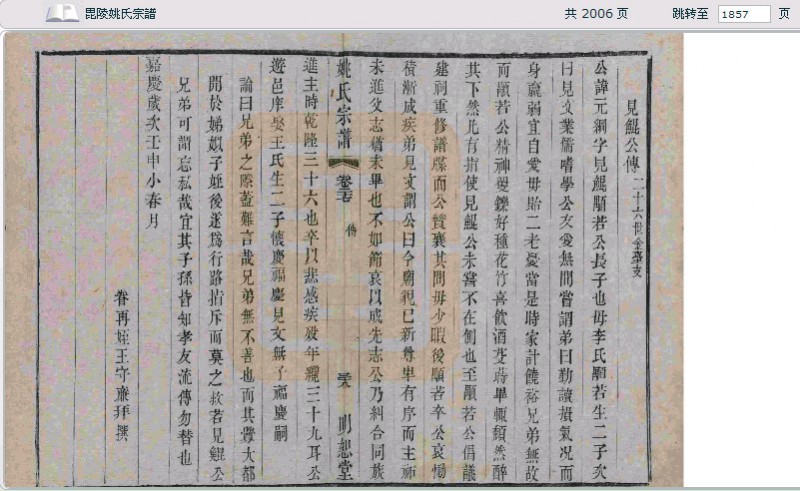 毘陵姚氏宗譜
共 2006 页
跳转至 1857 页
見鯤公傳 二十六世金臺支
公諱元綱字見鯤順若公長子也母李氏順若生二子次
曰見文業儒嗜學公友愛無間嘗謂弟曰勤讀損氣况而
身羸弱宜自愛毋貽二老憂當是時家計饒裕兄弟無故
而順若公精神矍鑠好種花竹喜飲酒芟蒔畢輒頹然醉
其下然凡有指使見鯤公未嘗不在側也至順若公倡議
建祠重修譜牒而公贊襄其間毋少暇後順若卒公哀慟
積漸成疾弟見文謂公曰今廟視已新尊卑有序而主祏
未進父志猶未畢也不如節哀以成先志公乃糾合同族
姚氏宗譜 卷 傳 明恕堂
進主時乾隆三十六也卒以悲感疾殁年纔三十九耳公
遊邑庠娶王氏生二子懷慶福慶見文無子福慶嗣
論曰兄弟之際蓋難言哉兄弟無不善也而其釁大都
開於娣姒子姪後遂為行路指斥而莫之救若見鯤公
兄弟可謂忘私哉宜其子孫皆知孝友流傳勿替也
嘉慶歲次壬申小春月
眷再姪王守 拜撰